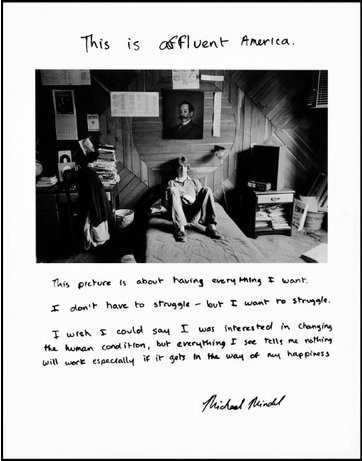 This is affluent America.
This picture is about having everything I want.
I don't have to struggle – but I want to struggle.
I wish I could say I was interested in changing
the human condition, but everything I see tells me nothing
will work especially if it gets in the way of my happiness
Michael Mindel